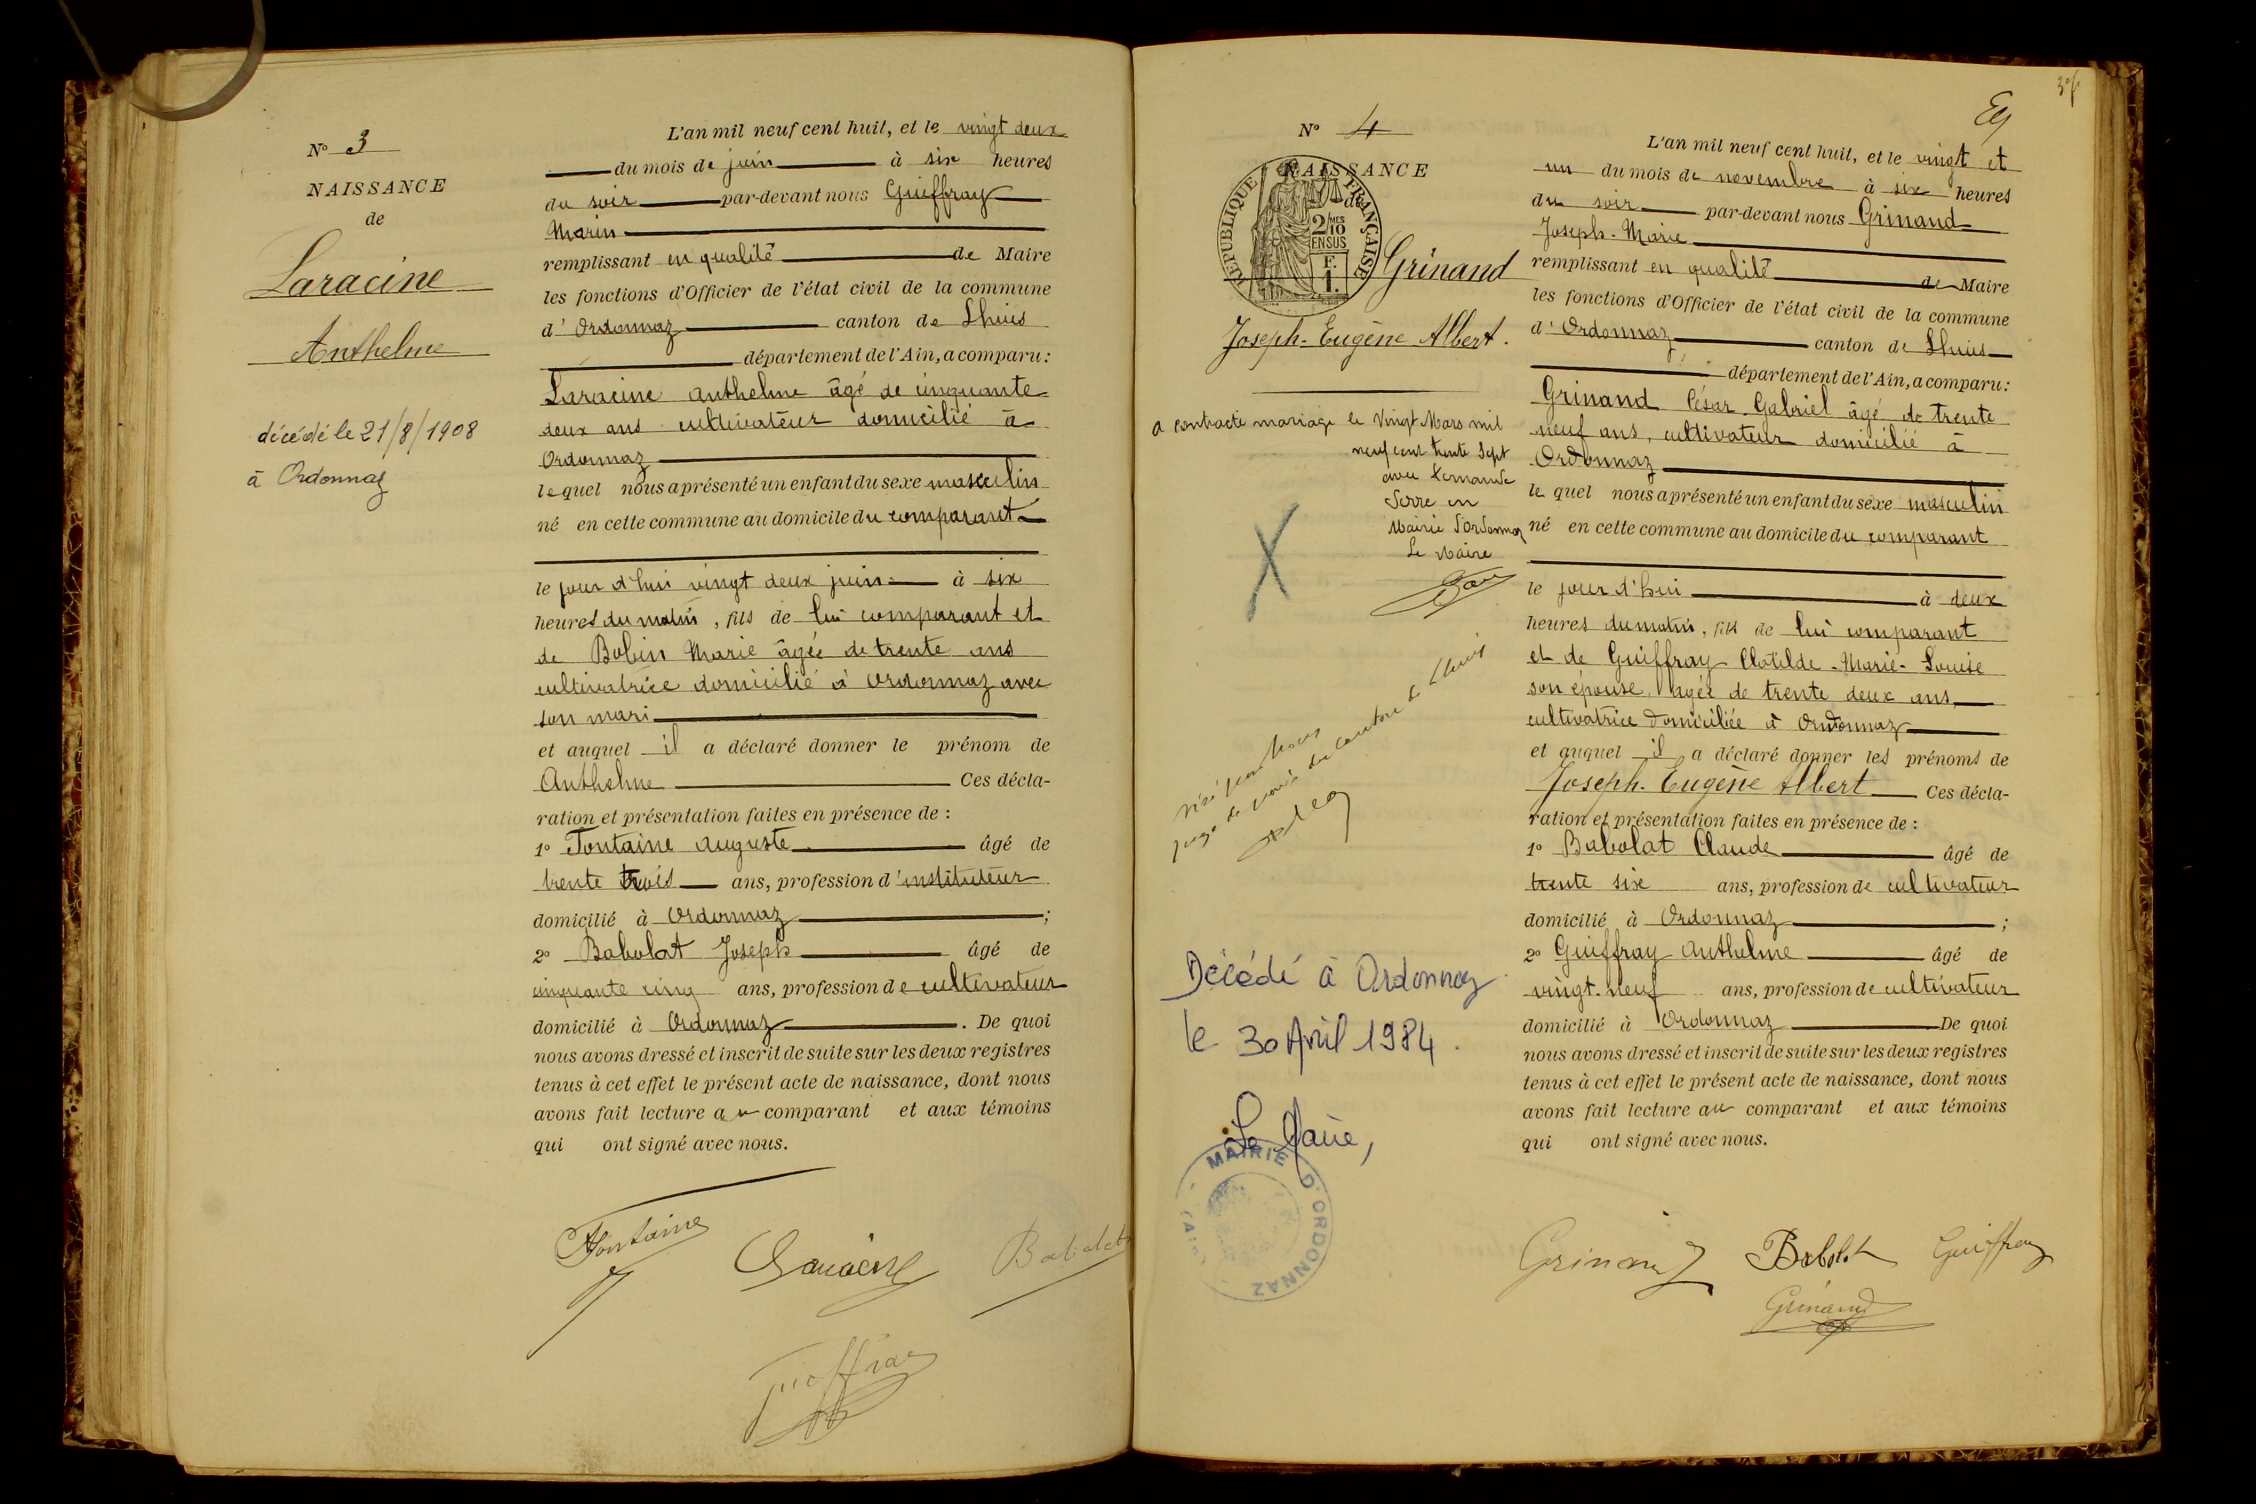 N° 3
NAISSANCE
de
Laracine
Anthelme
décédé le 21/8/1908
à Ordonnaz
L'an mil neuf cent huit, et le vingt deux
du mois de juin à six heures
du soir par-devant nous Guiffray
Marin
remplissant en qualité de Maire
les fonctions d'Officier de l'état civil de la commune
d' Ordonnaz canton de Lhuis
département de l'Ain, a comparu :
Laracine Anthelme âgé de cinquante
deux ans cultivateur domicilié à
Ordonnaz
lequel nous a présenté un enfant du sexe masculin
né en cette commune au domicile du comparant
le jour d'hui vingt deux juin à six
heures du matin, fils de lui comparant et
de Bobin Marie âgée de trente ans
cultivatrice domicilié à Ordonnaz avec
son mari
et auquel il a déclaré donner le prénom de
Anthelme Ces décla-
ration et présentation faites en présence de :
1° Fontaine Auguste âgé de
trente trois ans, profession d'instituteur
domicilié à Ordonnaz ;
2° Babolat Joseph âgé de
cinquante cinq ans, profession de cultivateur
domicilié à Ordonnaz . De quoi
nous avons dressé et inscrit de suite sur les deux registres
tenus à cet effet le présent acte de naissance, dont nous
avons fait lecture au comparant et aux témoins
qui ont signé avec nous.
Fontaine Laracine Babolat
Guiffray
N° 4
NAISSANCE
de
REPUBLIQUE FRANÇAISE
2/10 MES
EN SUS
F.
1.
Grinand
Joseph-Eugène Albert.
a contracté mariage le Vingt Mars mil
neuf cent trente sept
avec Fernande
Serre en
Mairie d'Ordonnaz
Le Maire
X
visé par nous
juge de paix du canton de Lhuis
Décédé à Ordonnaz
le 30 Avril 1984.
Le Maire,
MAIRIE D'ORDONNAZ
(AIN)
Grinand César Gabriel âgé de trente
L'an mil neuf cent huit, et le vingt et
un du mois de novembre à six heures
du soir par-devant nous Grinand
Joseph-Marie
remplissant en qualité de Maire
les fonctions d'Officier de l'état civil de la commune
d' Ordonnaz canton de Lhuis
département de l'Ain, a comparu :
neuf ans, cultivateur domicilié à
Ordonnaz
lequel nous a présenté un enfant du sexe masculin
né en cette commune au domicile du comparant
le jour d'hui à deux
heures du matin, fils de lui comparant
et de Guiffray Clotilde-Marie-Louise
son épouse, âgée de trente deux ans
cultivatrice domiciliée à Ordonnaz
et auquel il a déclaré donner les prénoms de
Joseph-Eugène Albert Ces décla-
ration et présentation faites en présence de :
1° Babolat Claude âgé de
trente six ans, profession de cultivateur
domicilié à Ordonnaz ;
2° Guiffray Anthelme âgé de
vingt-neuf ans, profession de cultivateur
domicilié à Ordonnaz De quoi
nous avons dressé et inscrit de suite sur les deux registres
tenus à cet effet le présent acte de naissance, dont nous
avons fait lecture au comparant et aux témoins
qui ont signé avec nous.
Grinand Babolat Guiffray
Grinand